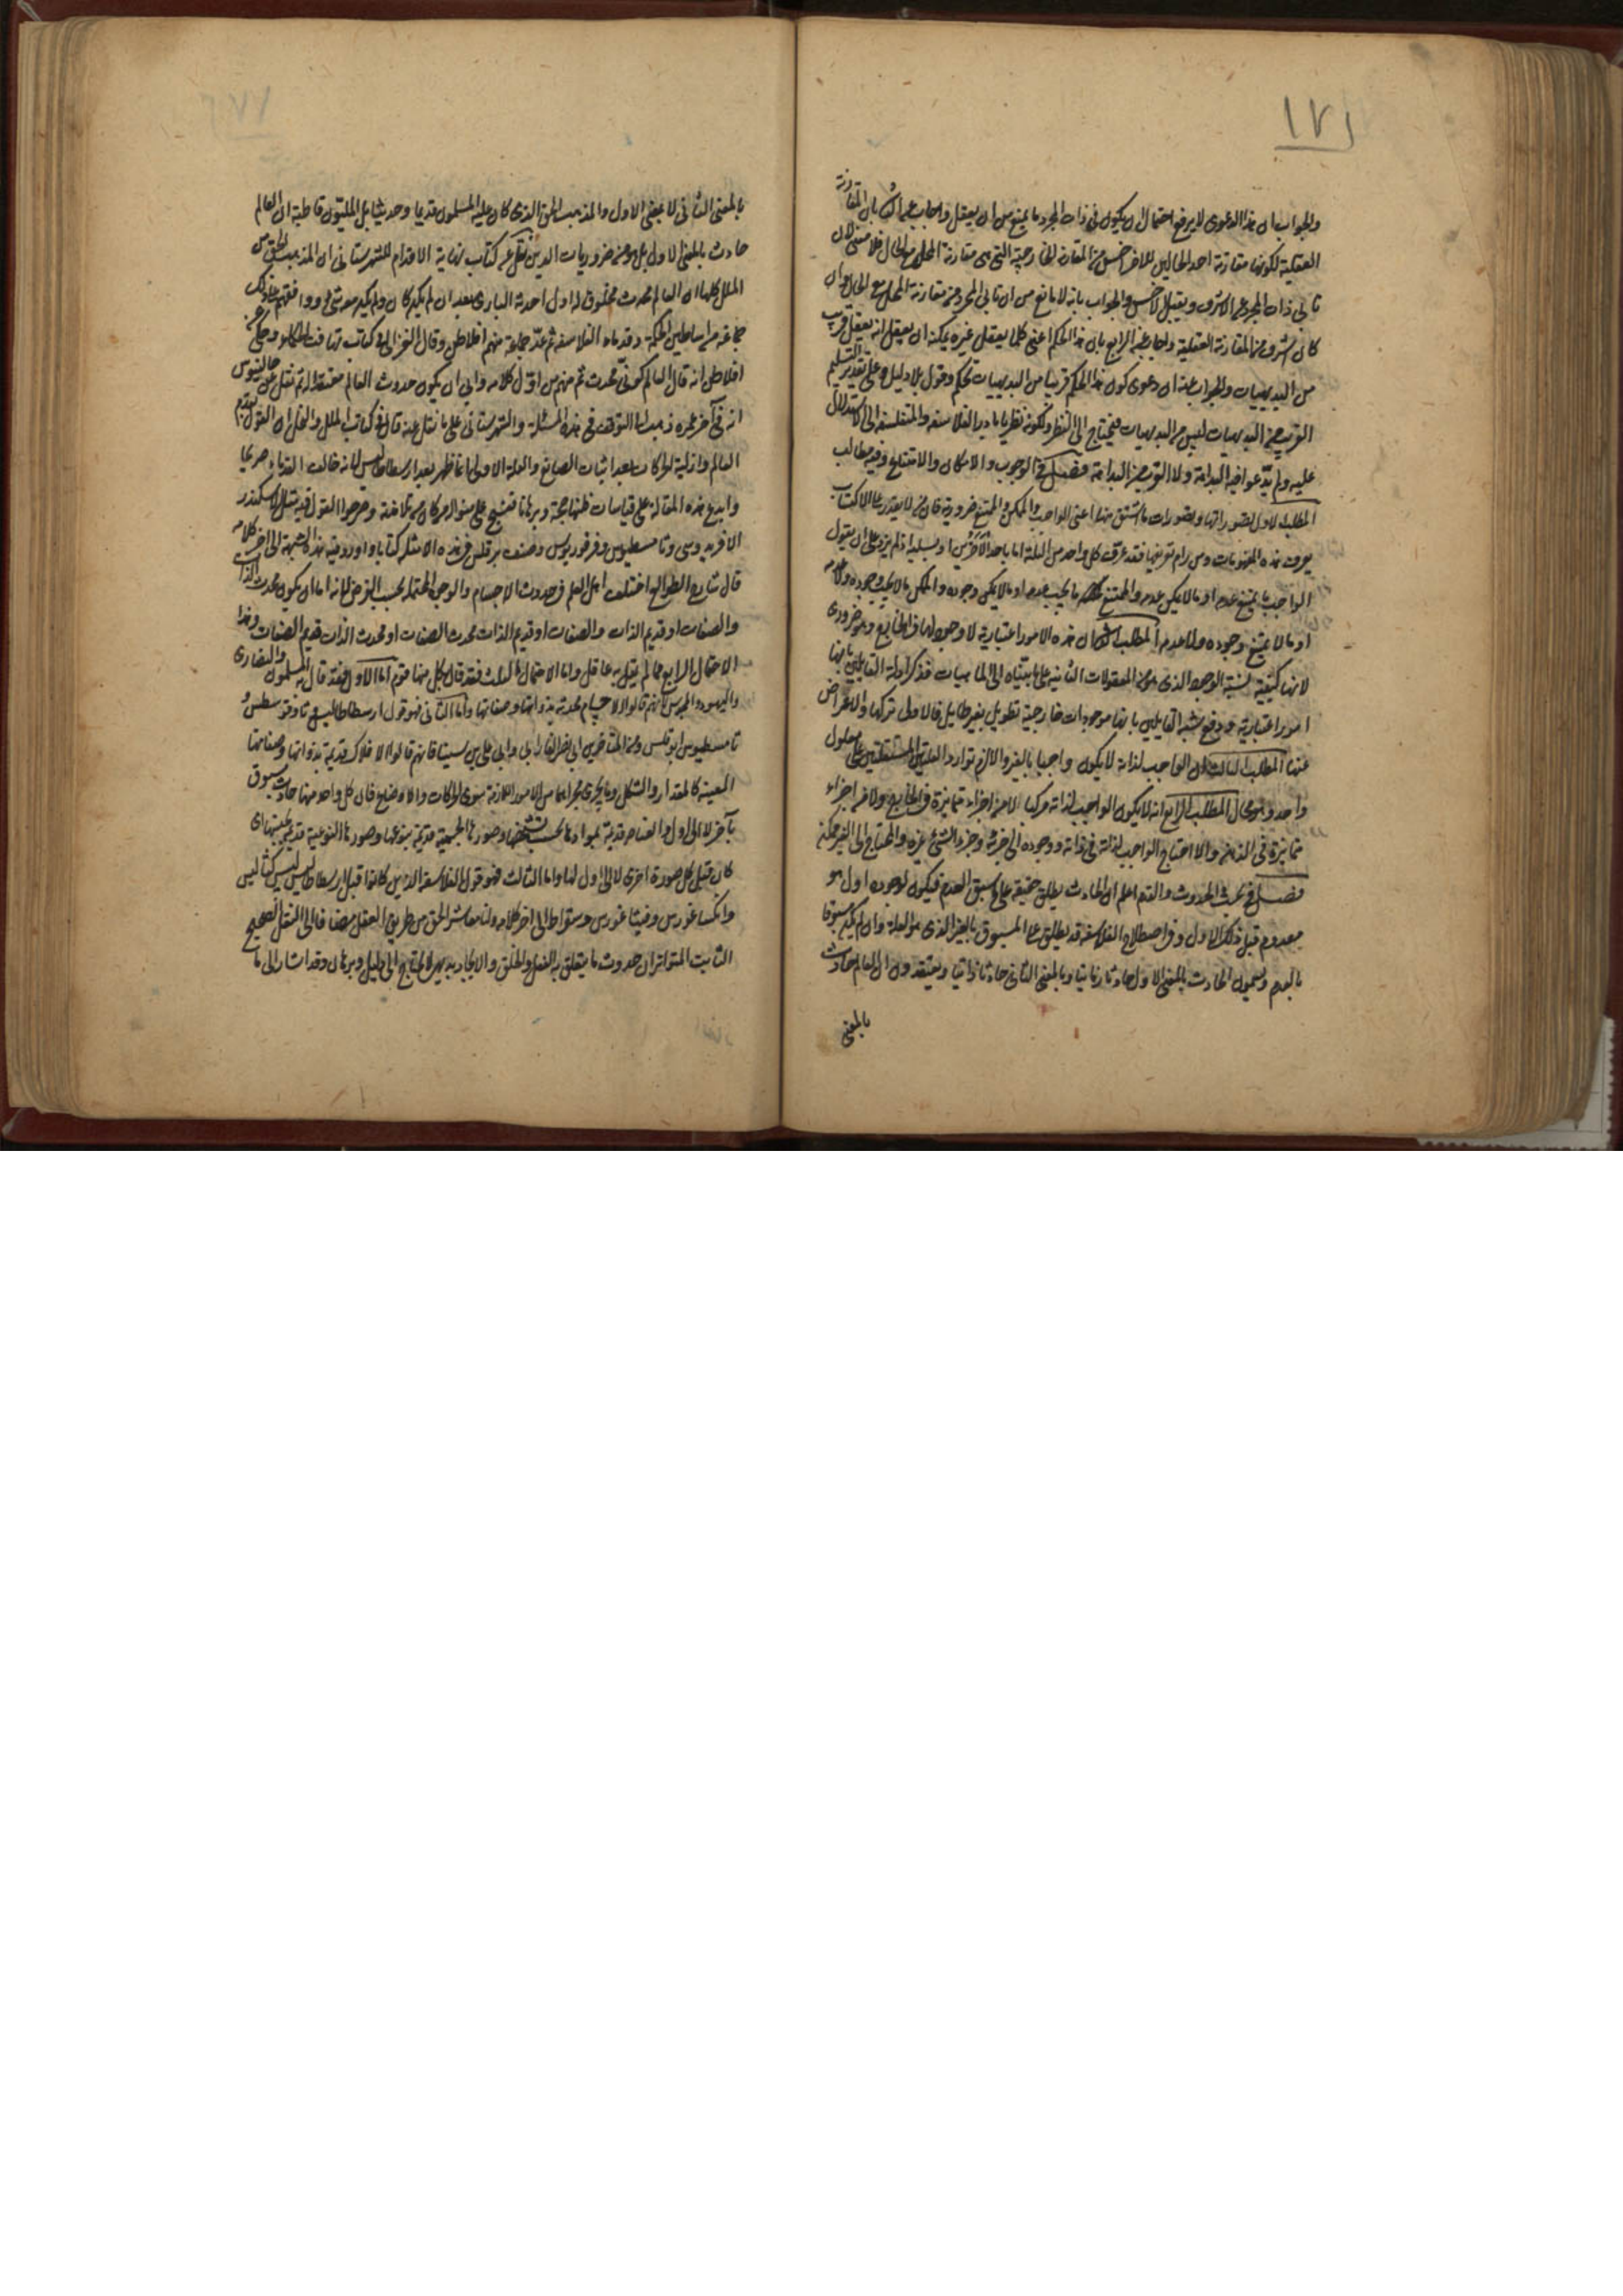 ١٧١
والجواب ان هذا الدعوى لا يرفع احتمال ان يكون فى ذات المجرد ما يمنع من ان يعقل واجاب عن الثالث بان المقارنة
العقلية لكونها مقارنة احد الحالين للاخر اخس من المقارنة الخارجية التى هى مقارنة المحل مع الحال فلا معنى لان
تابى ذات المجرد عن الاشرف ويقبل الاخس والجواب بانه لا مانع من ان تابى المجرد عن مقارنة المحل مع الحال وان
كان اشرف من المقارنة العقلية واجاب عن الرابع بان هذا الحكم اعنى كلما يعقل غيره يمكنه ان يعقل انه يعقل قريب
من البديهيات والجواب عنه ان دعوى كون هذا الحكم قريبا من البديهيات تحكم وقول بلا دليل وعلى تقدير التسليم
القريب من البديهيات ليس من البديهيات فيحتاج الى النظر ولكونه نظريا بادر الفلاسفة والمتفلسفة الى الاستدلال
عليه ولم يدّعوا فيه البداهة ولا القرب من البداهة فصل فى الوجوب والامكان والامتناع وفيه مطالب
المطلب الاول تصوراتها وتصورات ما اشتق منها اعنى الواجب والممكن والممتنع ضرورية فان من لا يقدر على الاكتساب
يعرف هذه المفهومات ومن رام تعريفها فقد عرّف كل واحد من الثلثة اما باحد الاخرين او بسلبه اذ لم يزد على ان يقول
الواجب ما يمتنع عدمه او ما لا يمكن عدمه والممتنع ما يجب عدمه او ما لا يمكن وجوده والممكن ما لا يجب وجوده ولا عدمه
او ما لا يمتنع وجوده ولا عدمه المطلب الثانى ان هذه الامور اعتبارية لا وجود لها فى الخارج وهو ضرورى
لانها كيفية لنسبة الوجود الذى هو من المعقولات الثانية على ما بيّناه الى الماهيات فذكر ادلة القايلين بانها
امور اعتبارية ودفع شبه القايلين بانها موجودات خارجية تطويل بغير طايل فالاولى تركها والاعراض
عنها المطلب الثالث ان الواجب لذاته لا يكون واجبا بالغير والا لزم توارد العلتين المستقلتين على معلول
واحد وهو محال المطلب الرابع انه لا يكون الواجب لذاته مركبا لا من اجزاء متمايزة فى الخارج ولا من اجزاء
متمايزة فى الذهن والا احتاج الواجب لذاته فى ذاته ووجوده الى جزئه وجزء الشئ غيره والمحتاج الى الغير ممكن
فصل فى بحث الحدوث والقدم اعلم ان الحادث يطلق حقيقة على ما سبق العدم فيكون لوجوده اول هو
معدوم قبل ذلك الاول وفى اصطلاح الفلاسفة قد يطلق على المسبوق بالغير الذى هو العلة وان لم يكن مسبوقا
بالعدم ويسمون الحادث بالمعنى الاول حادثا زمانيا وبالمعنى الثانى حادثا ذاتيا ويعتقدون ان العالم حادث
بالمعنى
بالمعنى الثانى لا بمعنى الاول والمذهب الحق الذى كان عليه المسلمون قديما وحديثا بل المليّون قاطبة ان العالم
حادث بالمعنى الاول بل هو من ضروريات الدين نقل عن كتاب نهاية الاقدام للشهرستانى ان المذهب الحق من
الملل كلها ان العالم محدث مخلوق له اول احدثه البارى بعد ان لم يكن كان ولم يكن معه شئ ووافقهم على ذلك
جماعة من اساطين الحكمة وقدماء الفلاسفة ثم عدّ جماعة منهم افلاطن وقال الغزالى فى كتاب تهافت الحكماء وحكى عن
افلاطن انه قال العالم مكون محدث ثم منهم من اوّل كلامه وابى ان يكون حدوث العالم معتقدا له ثم نقل عن جالينوس
انه فى آخر عمره ذهب الى التوقف فى هذه المسئلة والشهرستانى على ما نقل عنه قال فى كتاب الملل والنحل ان القول بقدم
العالم وازلية الحركات بعد اثبات الصانع والعلة الاولى انما ظهر بعد ارسطاطاليس لانه خالف القدماء صريحا
وابدع هذه المقالة على قياسات ظنها حجة وبرهانا فنسج على منواله من كان من تلامذته وصرحوا القول فيه مثل الاسكندر
الافريدوسى وثامسطيوس وفرفوريوس وصنف برقلس فى هذه الامثلة كتابا واورد فيه هذه الشبهة الى اخر كلامه
قال شارح الطوالع اختلف اهل العلم فى حدوث الاجسام والوجوه المحتملة بحسب الفرض لانه اما ان يكون محدث الذات
والصفات او قديم الذات والصفات او قديم الذات محدث الصفات او محدث الذات قديم الصفات وهذا
الاحتمال الرابع مما لم يقل به عاقل واما الاحتمال الثلث فقد قال بكل منها قوم اما الاول فقد قال به المسلمون والنصارى
واليهود والمجوس لانهم قالوا الاجسام محدثة بذواتها وصفاتها واما الثانى فهو قول ارسطاطاليس وثاوفرسطس
ثامسطيوس ابرقلس ومن المتاخرين ابى نصر الفارابى وابى على بن سينا فانهم قالوا الافلاك قديمة بذواتها وصفاتها
المعينة كالمقدار والشكل وما يجرى مجراهما من الامور اللازمة سوى الحركات والاوضاع فان كل واحد منها حادث مسبوق
بآخر لا الى اول والعناصر قديمة بموادها بحسب تشخصها وصورها الجسمية قديمة بنوعها وصورها النوعية قديمة بجنسها اى
كان قبل كل صورة اخرى لا الى اول لها واما الثالث فهو قول الفلاسفة الذين كانوا قبل ارسطاطاليس كثاليس
وانكساغورس وفيثاغورس وسقراط الى اخر كلامه ولنا معاشر الحق من طريق العقل مضافا الى النقل الصحيح
الثابت المتواتر ان حدوث ما يتعلق به الفعل والخلق والايجاد بديهى لا يحتاج الى دليل وبرهان وقد اشار الى ما